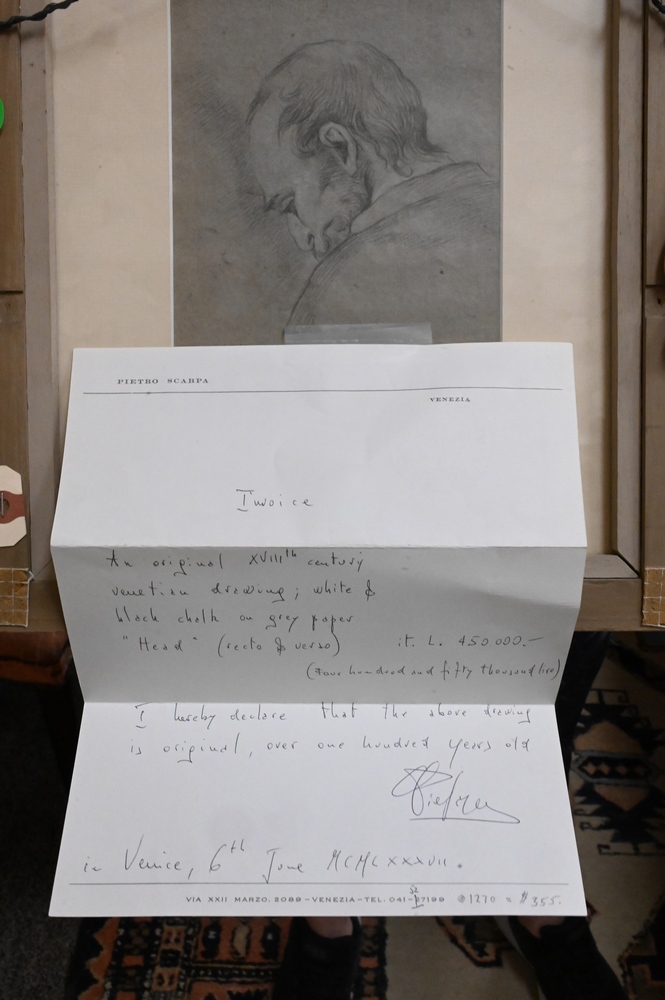 PIETRO SCARPA
VENEZIA
Invoice
An original XVIIIth century
venetian drawing; white &
black chalk on grey paper
"Head" (recto & verso) it. L. 450.000.-
(Four hundred and fifty thousand lire)
I hereby declare that the above drawing
is original, over one hundred years old
in Venice, 6th June MCMLXXXVII.
VIA XXII MARZO. 2089 - VENEZIA - TEL. 041- 7199 @1270 = $355.